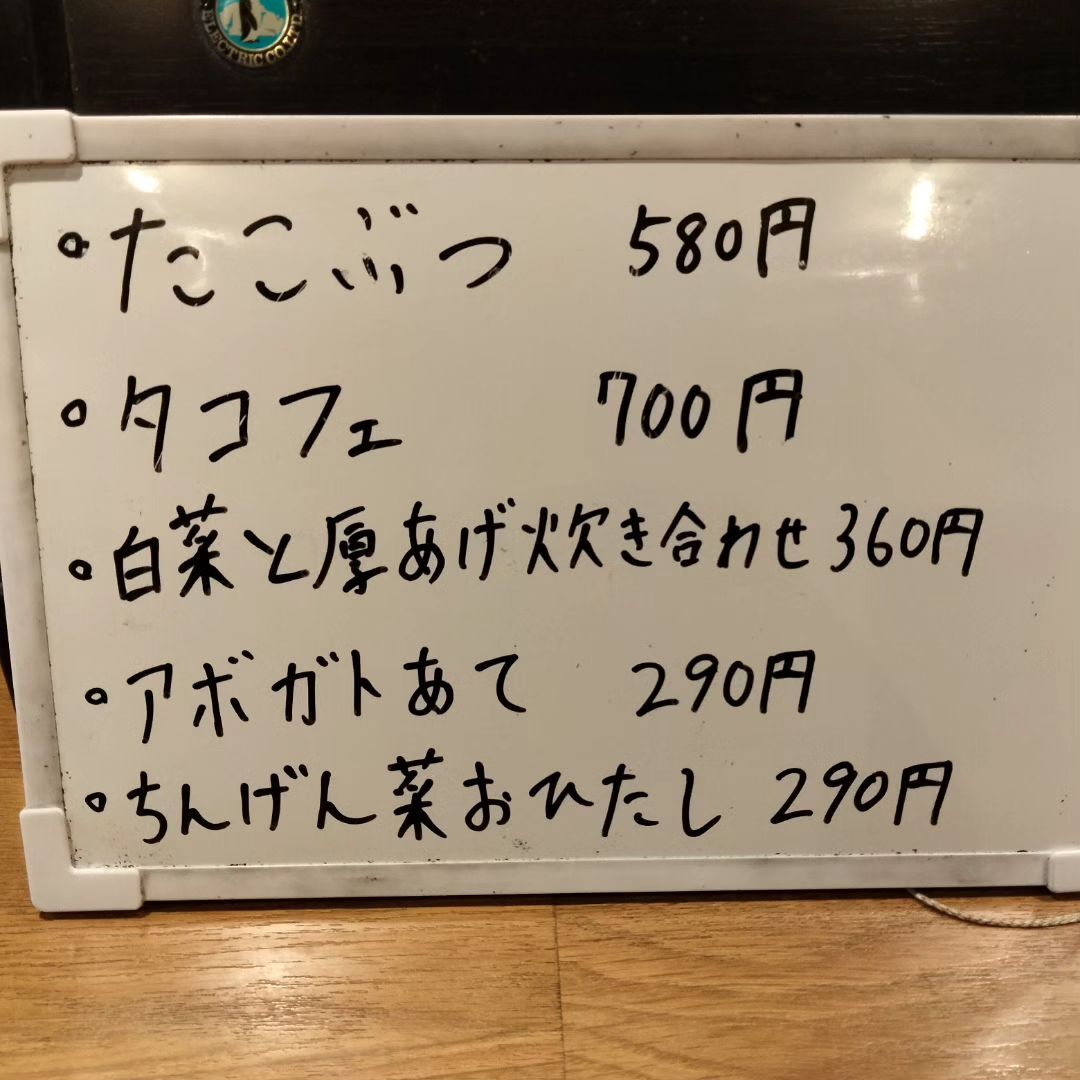 ELECTRIC CO.LTD
・たこぶつ 580円
・タコフェ 700円
・白菜と厚あげ炊き合わせ 360円
・アボガトあて 290円
・ちんげん菜おひたし 290円